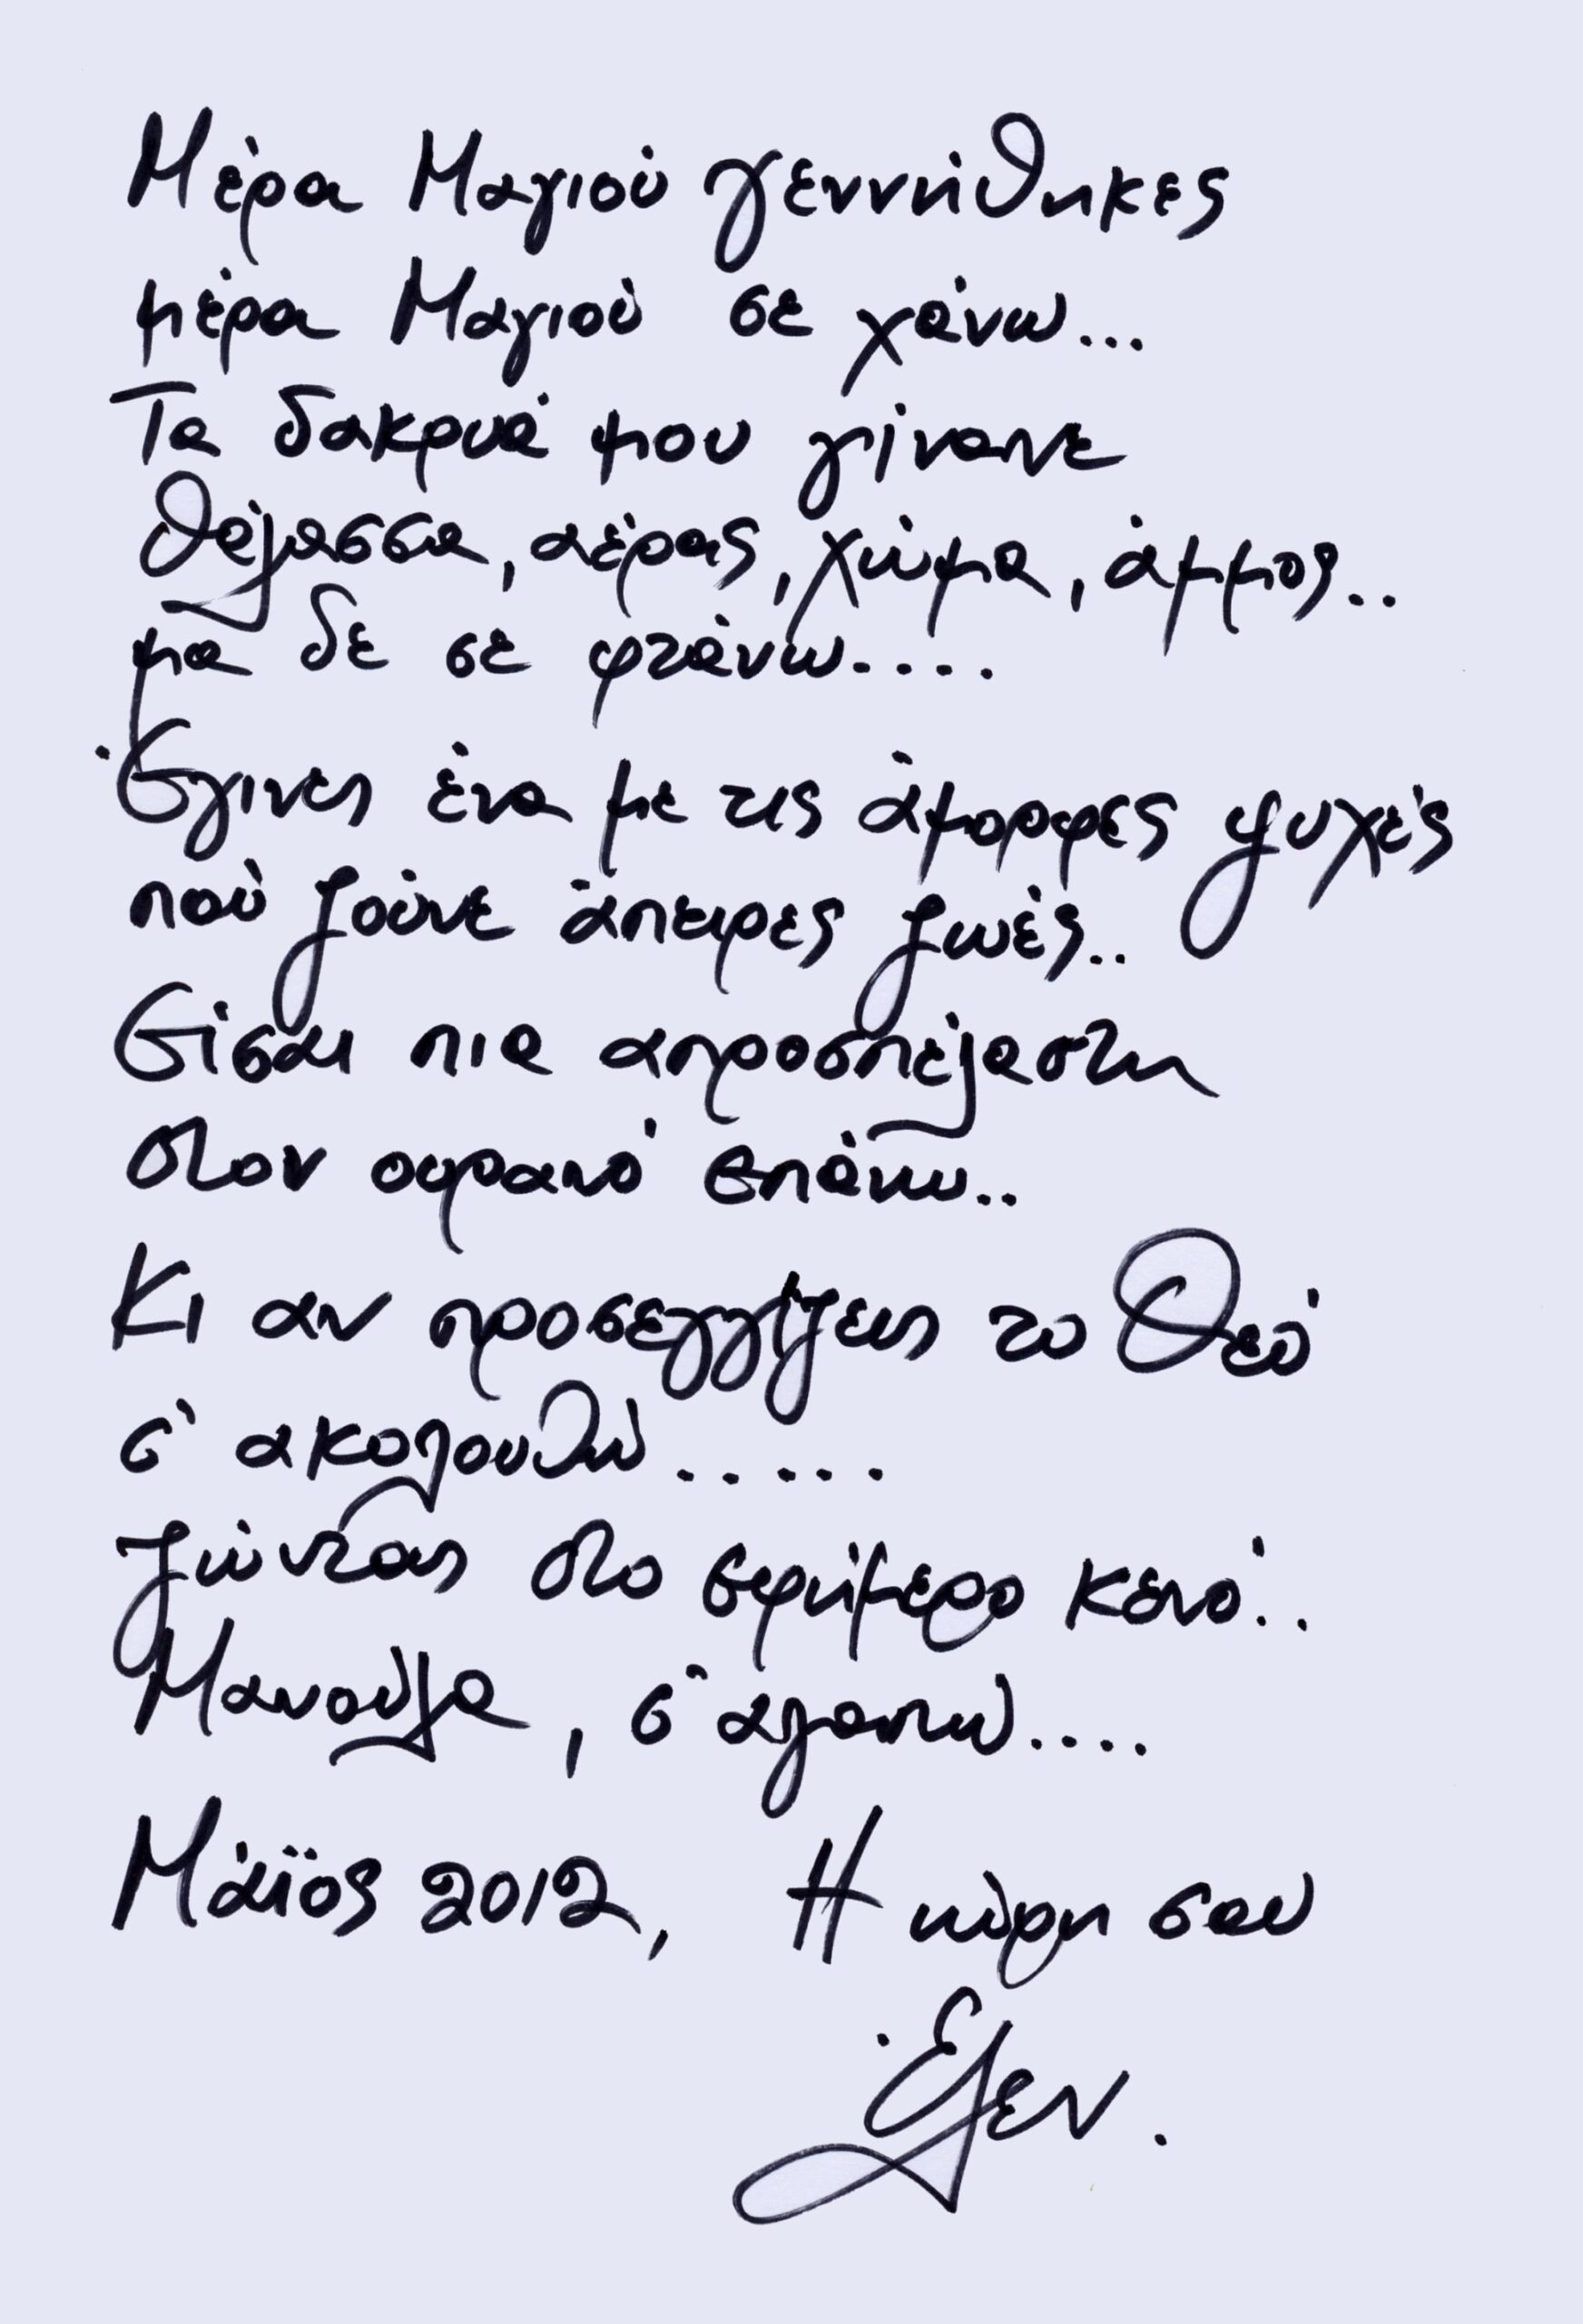 Μέρα Μαγιού γεννήθηκες
μέρα Μαγιού σε χάνω...
Τα δακρυά μου γίνανε
θάλασσα, αέρας, χώμα, άμμος..
μα δε σε φτάνω....
Έγινες ένα με τις άμορφες ψυχές
πού ζούνε άπειρες ζωές..
Είσαι πια απροσπέλαστη
στον ουρανό επάνω..
Κι αν προσεγγίζεις το Θεό
σ' ακολουθώ.....
ζώντας στο εφήμερο κενό..
Μανούλα, σ' αγαπώ....
Μάϊος 2012, Η κόρη σου
Έλεν.